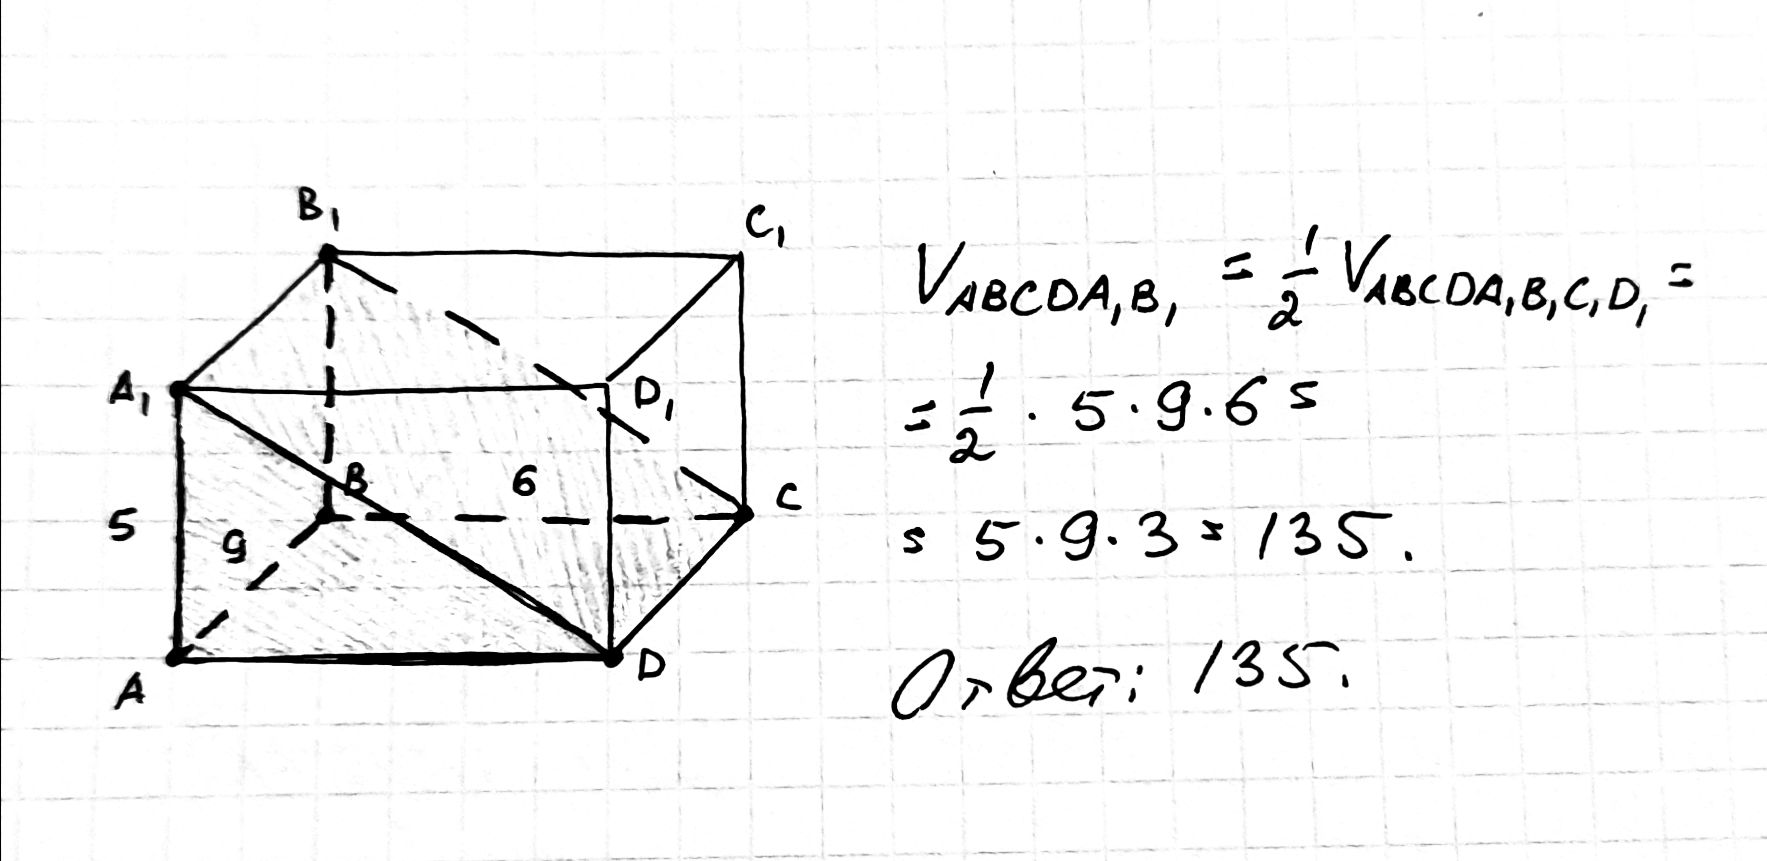 B₁
C₁
A₁
D₁
B
6
C
5
9
A
D
V_ABCDA₁B₁ = 1/2 V_ABCDA₁B₁C₁D₁ =
= 1/2 · 5 · 9 · 6 =
= 5 · 9 · 3 = 135.
Ответ: 135.